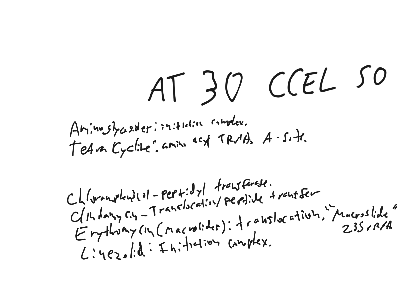 AT 30 CCEL 50
Aminoglycosides: initiation complex.
Tetracycline: amino acyl TRNA A-site.
Chloramphenicol - peptidyl transferase.
Clindamycin - Translocation/peptide transfer
Erythromycin (macrolides): translocation, "Macroslide"
23S rRNA
Linezolid: Initiation complex.